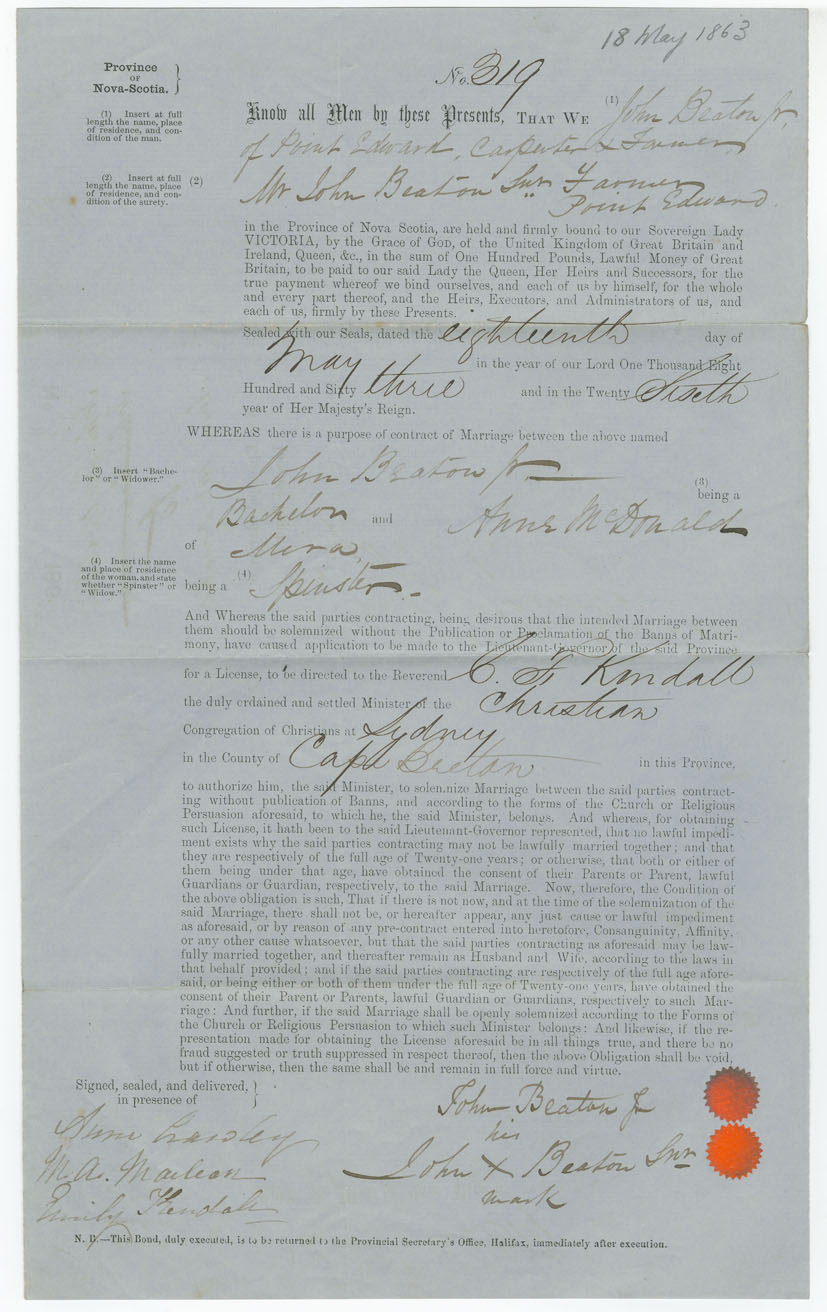 18 May 1863
Province
OF
Nova-Scotia.
No. 319
(1) Insert at full
length the name, place
of residence, and con-
dition of the man.
Know all Men by these Presents, THAT WE (1) John Beaton Jr.
of Point Edward, Carpenter & Farmer
(2) Insert at full
length the name, place
of residence, and con-
dition of the surety.
(2) Mr John Beaton Snr Farmer
Point Edward
in the Province of Nova Scotia, are held and firmly bound to our Sovereign Lady
VICTORIA, by the Grace of GOD, of the United Kingdom of Great Britain and
Ireland, Queen, &c., in the sum of One Hundred Pounds, Lawful Money of Great
Britain, to be paid to our said Lady the Queen, Her Heirs and Successors, for the
true payment whereof we bind ourselves, and each of us by himself, for the whole
and every part thereof, and the Heirs, Executors, and Administrators of us, and
each of us, firmly by these Presents.
Sealed with our Seals, dated the eighteenth day of
May in the year of our Lord One Thousand Eight
Hundred and Sixty three and in the Twenty Sixth
year of Her Majesty's Reign.
WHEREAS there is a purpose of contract of Marriage between the above named
(3) Insert "Bache-
lor" or "Widower."
John Beaton Jr (3)
being a
Bachelor and Anne McDonald
of Mira
(4) Insert the name
and place of residence
of the woman, and state
whether "Spinster" or
"Widow."
being a (4) Spinster.
And Whereas the said parties contracting, being desirous that the intended Marriage between
them should be solemnized without the Publication or Proclamation of the Banns of Matri-
mony, have caused application to be made to the Lieutenant-Governor of the said Province
for a License, to be directed to the Reverend C. F. Kendall
the duly ordained and settled Minister of the Christian
Congregation of Christians at Sydney
in the County of Cape Breton in this Province,
to authorize him, the said Minister, to solemnize Marriage between the said parties contract-
ing without publication of Banns, and according to the forms of the Church or Religious
Persuasion aforesaid, to which he, the said Minister, belongs. And whereas, for obtaining
such License, it hath been to the said Lieutenant-Governor represented, that no lawful impedi-
ment exists why the said parties contracting may not be lawfully married together; and that
they are respectively of the full age of Twenty-one years; or otherwise, that both or either of
them being under that age, have obtained the consent of their Parents or Parent, lawful
Guardians or Guardian, respectively, to the said Marriage. Now, therefore, the Condition of
the above obligation is such, That if there is not now, and at the time of the solemnization of the
said Marriage, there shall not be, or hereafter appear, any just cause or lawful impediment
as aforesaid, or by reason of any pre-contract entered into heretofore, Consanguinity, Affinity,
or any other cause whatsoever, but that the said parties contracting as aforesaid may be law-
fully married together, and thereafter remain as Husband and Wife, according to the laws in
that behalf provided; and if the said parties contracting are respectively of the full age afore-
said, or being either or both of them under the full age of Twenty-one years, have obtained the
consent of their Parent or Parents, lawful Guardian or Guardians, respectively to such Mar-
riage: And further, if the said Marriage shall be openly solemnized according to the Forms of
the Church or Religious Persuasion to which such Minister belongs: And likewise, if the re-
presentation made for obtaining the License aforesaid be in all things true, and there be no
fraud suggested or truth suppressed in respect thereof, then the above Obligation shall be void,
but if otherwise, then the same shall be and remain in full force and virtue.
Signed, sealed, and delivered,
in presence of
John Beaton Jr
Anne Crawley
his
M. A. Maclean
John X Beaton Snr
mark
Emily Kendall
N. B.—This Bond, duly executed, is to be returned to the Provincial Secretary's Office, Halifax, immediately after execution.